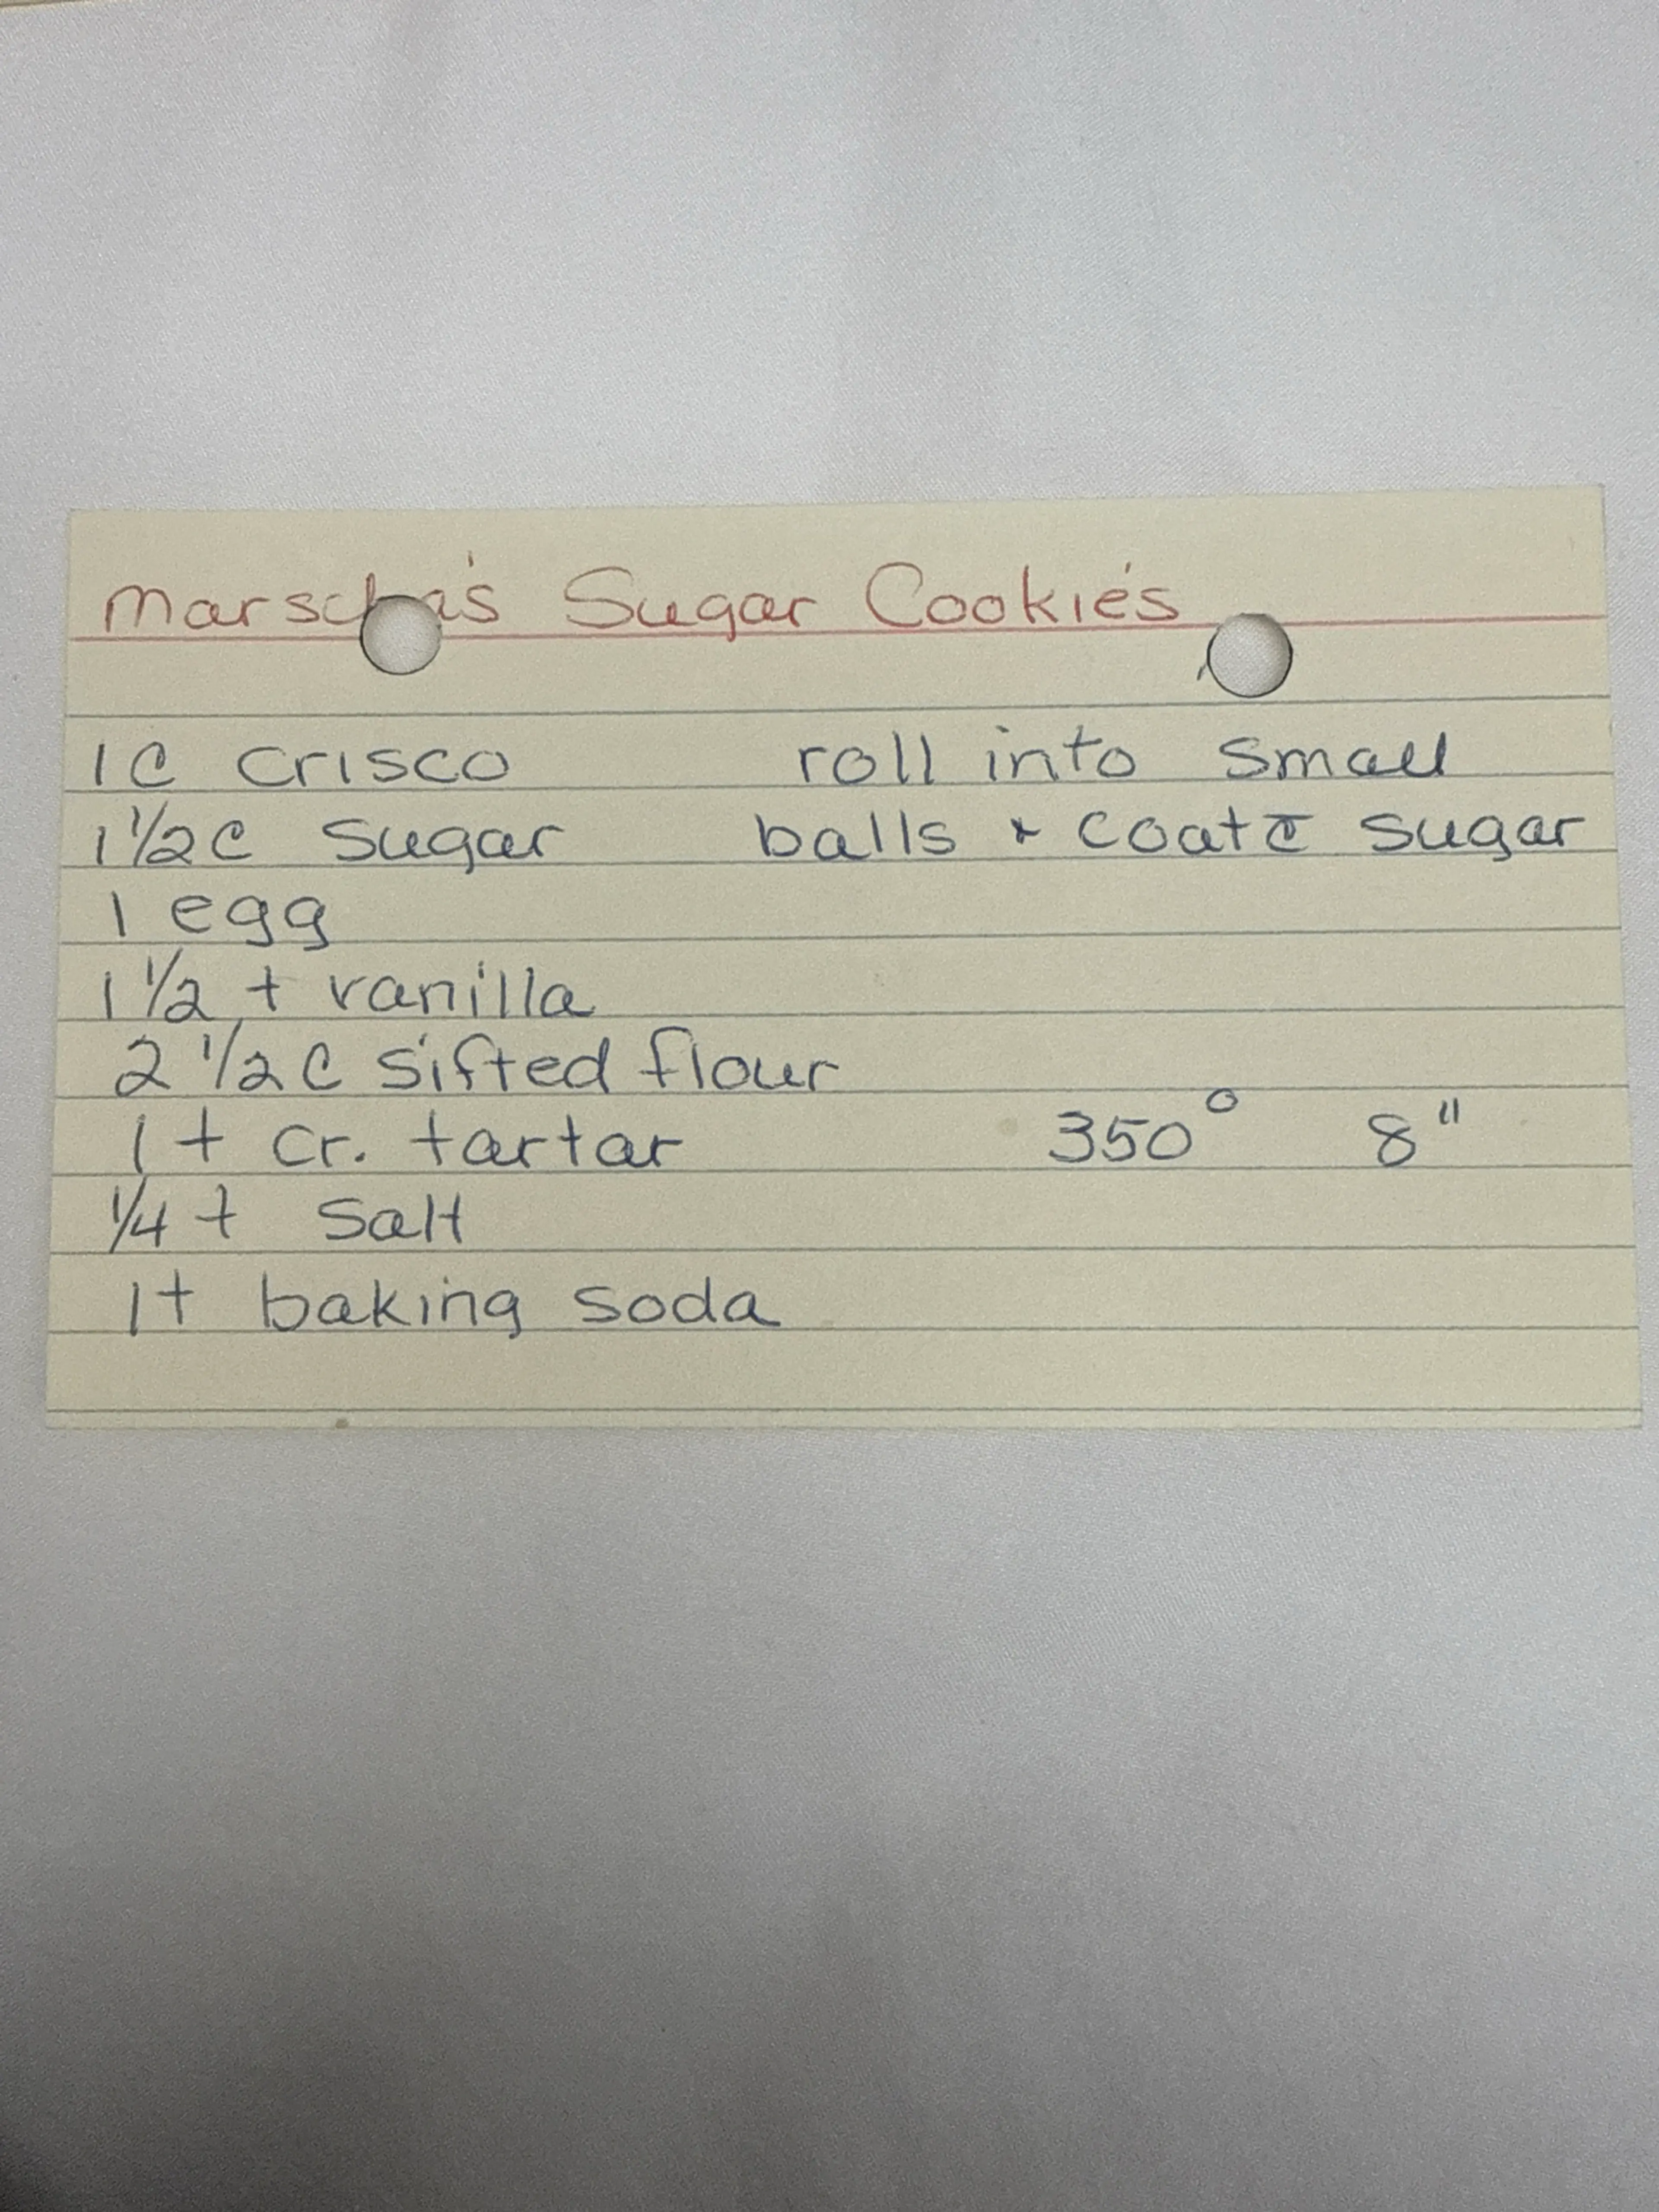 Marscha's Sugar Cookie's
1 C Crisco
1 1/2 C Sugar
1 egg
1 1/2 t vanilla
2 1/2 C sifted flour
1 t cr. tartar
1/4 t Salt
1 t baking soda
roll into small
balls + coat c̄ sugar
350° 8"